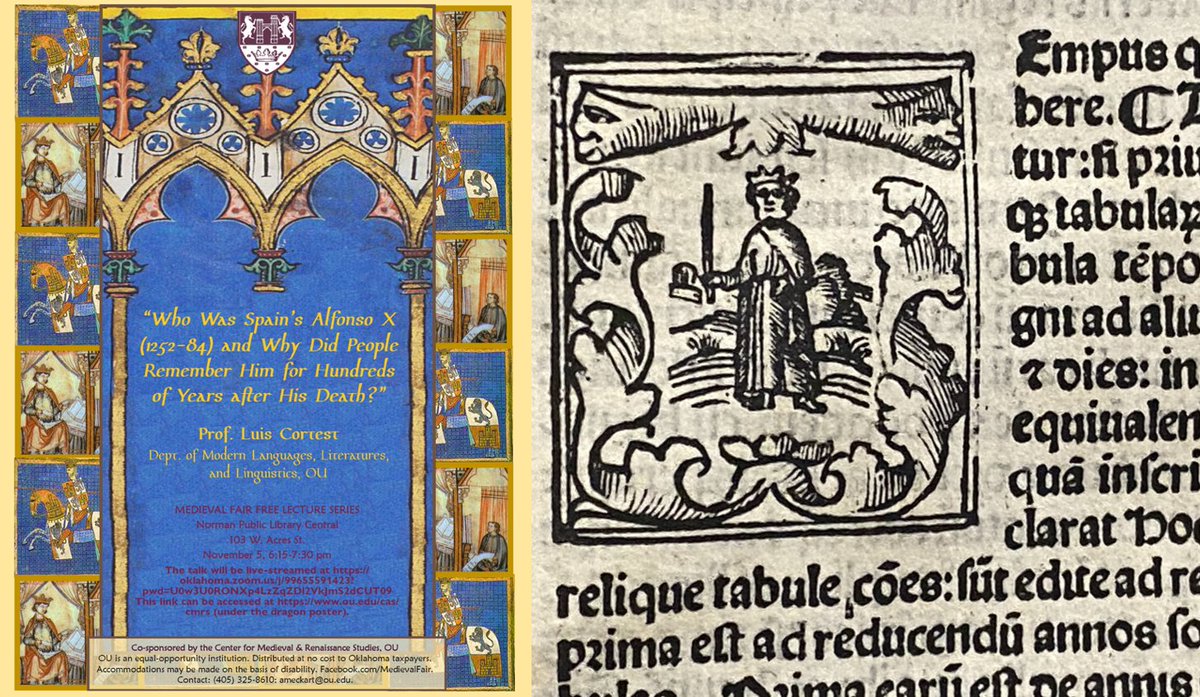 I I I
“Who Was Spain’s Alfonso X
(1252-84) and Why Did People
Remember Him for Hundreds
of Years after His Death?”
Prof. Luis Cortest
Dept. of Modern Languages, Literatures,
and Linguistics, OU
MEDIEVAL FAIR FREE LECTURE SERIES
Norman Public Library Central
103 W. Acres St.
November 5, 6:15-7:30 pm
The talk will be live-streamed at https://
oklahoma.zoom.us/j/99655591423?
pwd=U0w3U0RONXp4LzZqZDI2VkJmS2dCUT09
This link can be accessed at https://www.ou.edu/cas/
cmrs (under the dragon poster).
Co-sponsored by the Center for Medieval & Renaissance Studies, OU
OU is an equal-opportunity institution. Distributed at no cost to Oklahoma taxpayers.
Accommodations may be made on the basis of disability. Facebook.com/MedievalFair.
Contact: (405) 325-8610: ameckart@ou.edu.
Empus q
bere.
tur:
qꝫ tabulaꝝ
bula tēpo
gni ad aliu
⁊ dies: in
equiualen
quā inſcri
clarat
relique tabule cões: ſūt edite ad re
prima eſt ad reducendū annos ſo